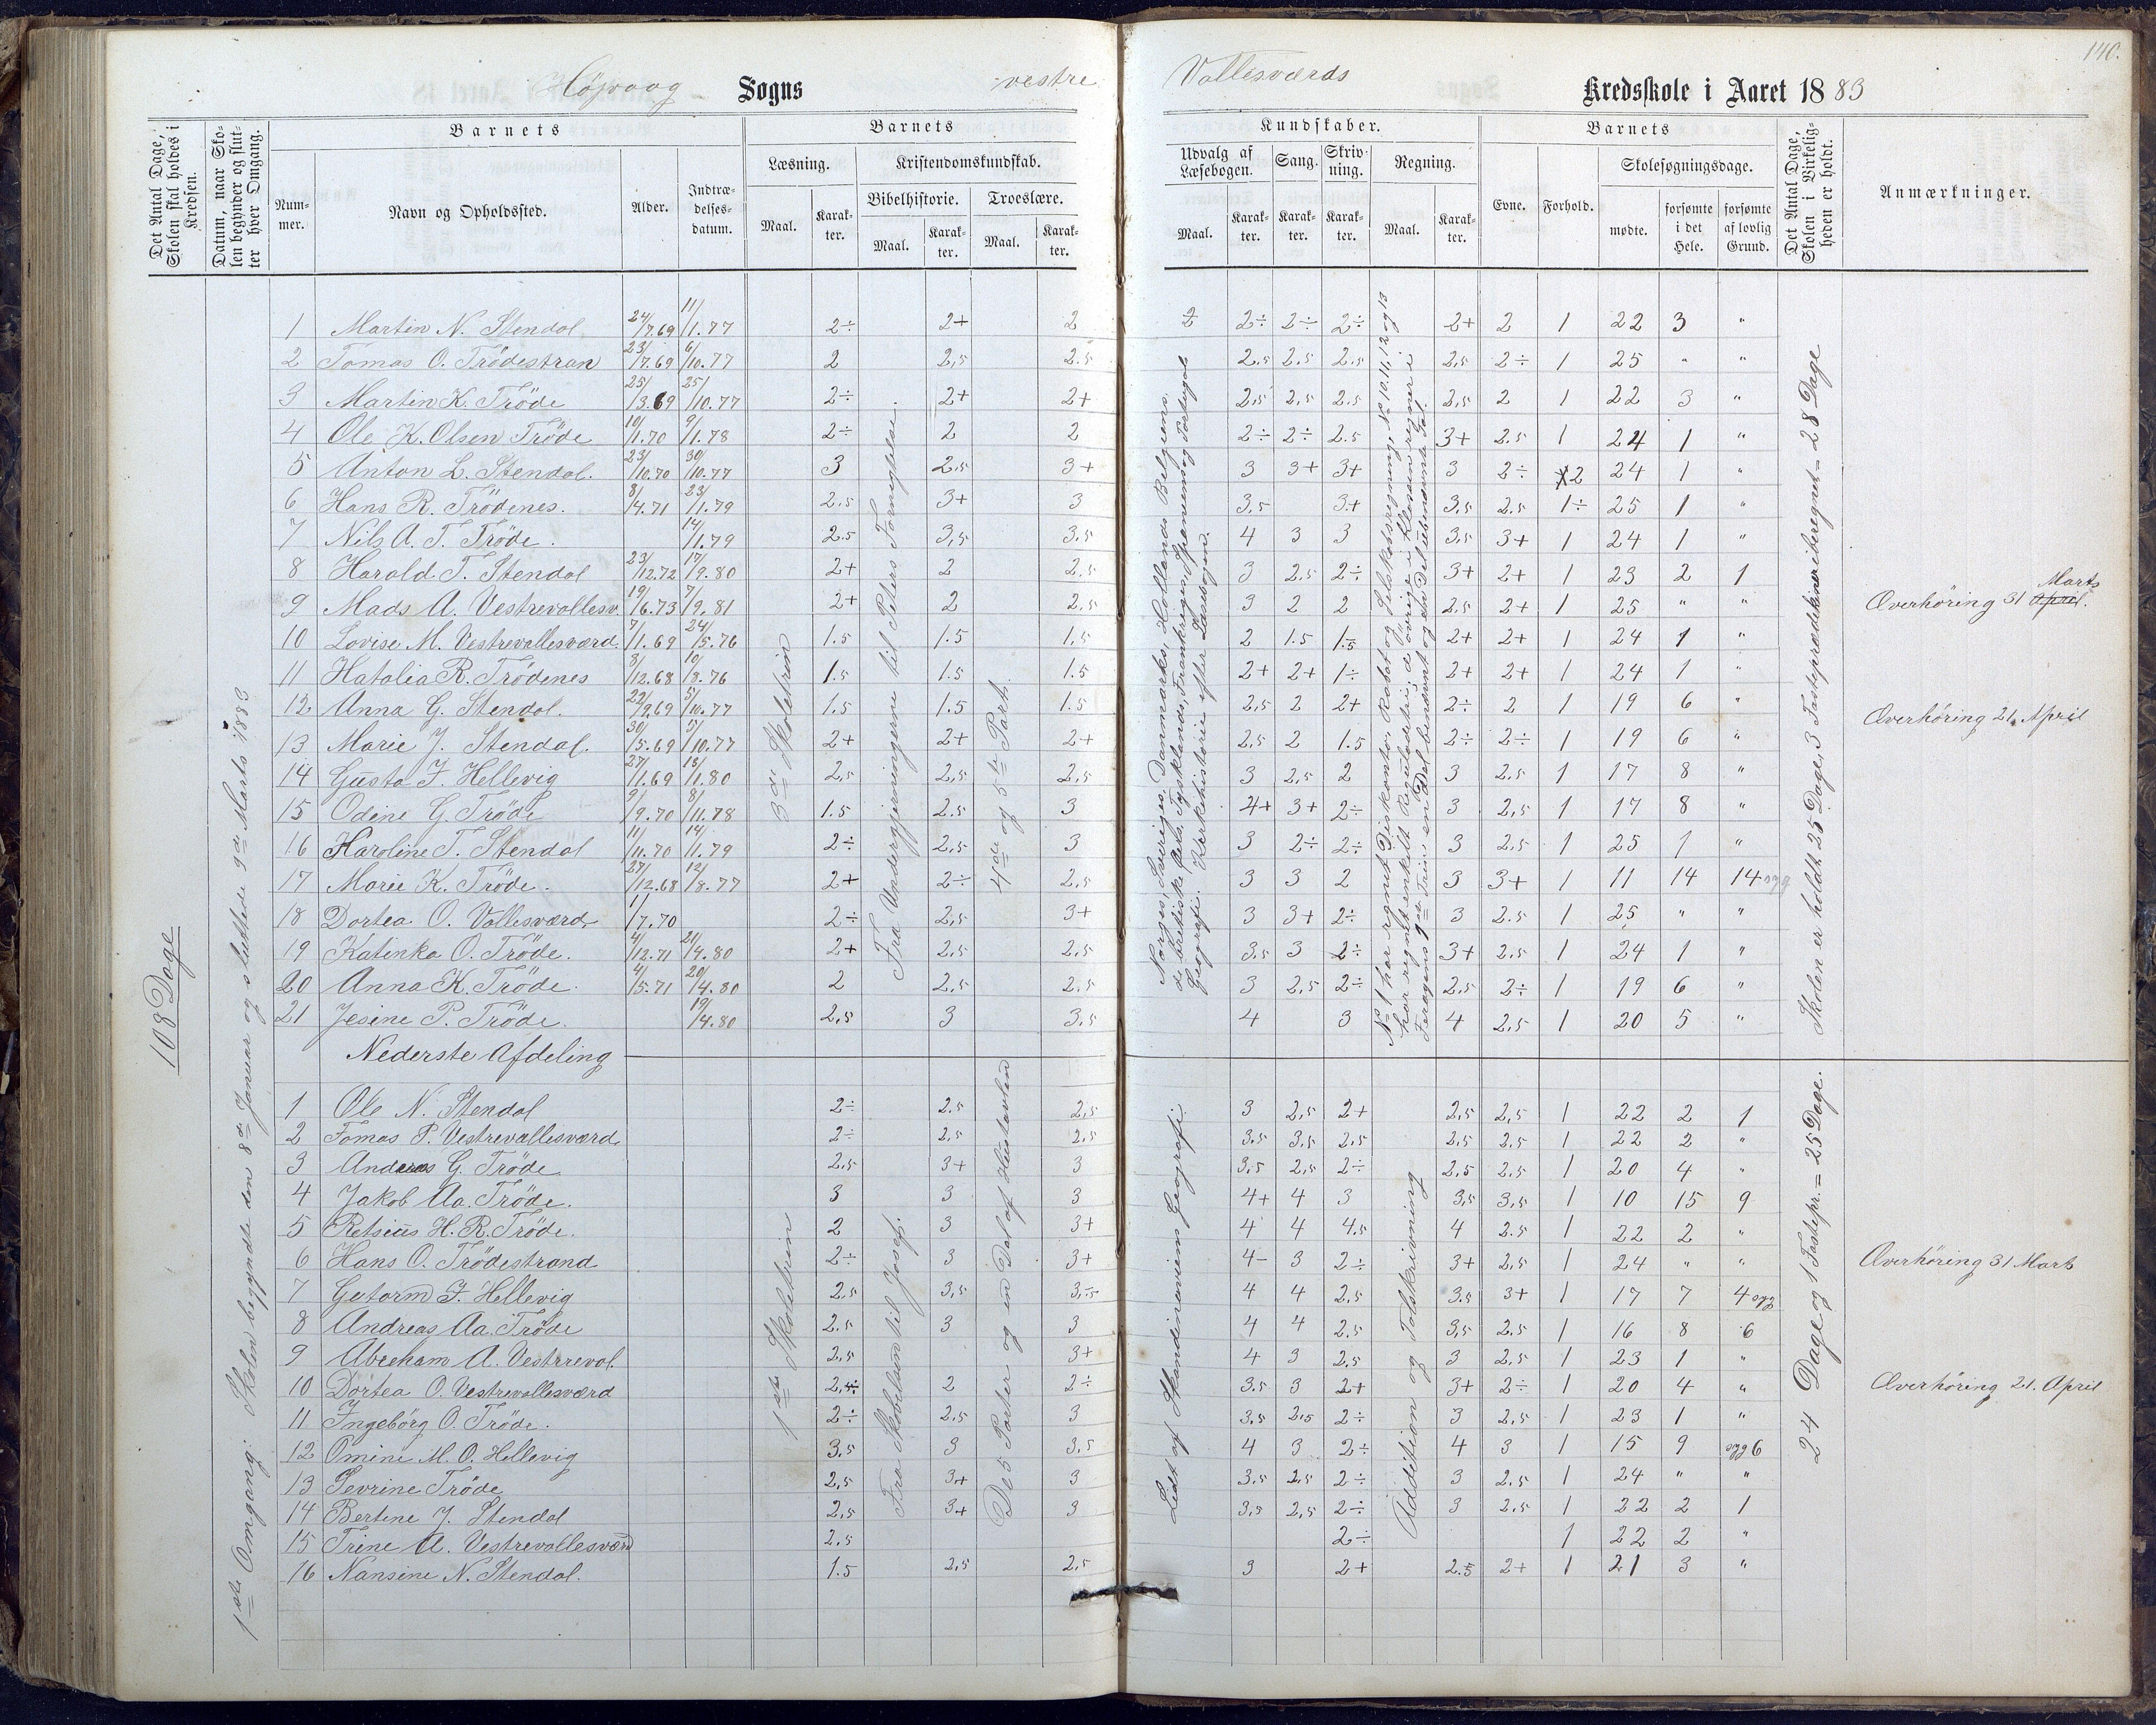 140.
Höjvaag Sogns vestre Vallesværds Kredsskole i Aaret 1883
Det Antal Dage, Skolen skal holdes i Kredsen.
Datum, naar Skolen begynder og slutter hver Omgang.
Barnets
Nummer.
Navn og Opholdssted.
Alder.
Indtrædelsesdatum.
Barnets
Læsning.
Maal.
Karakter.
Kristendomskundskab.
Bibelhistorie.
Maal.
Karakter.
Troeslære.
Maal.
Karakter.
Kundskaber.
Udvalg af Læsebogen.
Maal.
Karakter.
Sang.
Karakter.
Skrivning.
Karakter.
Regning.
Maal.
Karakter.
Barnets
Evne.
Forhold.
Skolesøgningsdage.
mødte.
forsømte i det Hele.
forsømte af lovlig Grund.
Det Antal Dage, Skolen i Virkeligheden er holdt.
Anmærkninger.
108 Dage
1ste Omgang: Skolen begyndte den 8de Januar og sluttede 9de Marts 1883
3die Skoletrin
Fra Undergjerningerne til Peters Fornegtelse.
4de og 5te Part.
1 Martin N. Stendal 24/7.69 11/1.77 2÷ 2+ 2 2 2÷ 2÷ 2÷ 2+ 2 1 22 3 "
2 Tomas O. Trödestran 23/7.69 6/10.77 2 2,5 2.5 2.5 2.5 2.5 2,5 2÷ 1 25 " "
3 Martin K. Tröde 25/3.69 25/10.77 2÷ 2+ 2+ 2,5 2,5 2.5 2,5 2 1 22 3 "
4 Ole K. Olsen Tröde 10/1.70 9/1.78 2÷ 2 2 2÷ 2÷ 2.5 3+ 2.5 1 24 1 "
5 Anton L. Stendal. 23/10.70 30/10.77 3 2.5 3+ 3 3+ 3+ 3 2÷ 2 24 1 "
6 Hans R. Trödenes. 8/4.71 23/1.79 2.5 3+ 3 3.5 3+ 3,5 2.5 1÷ 25 1 "
7 Nils A. T. Tröde. 14/1.79 2.5 3,5 3.5 4 3 3 3,5 3+ 1 24 1 "
8 Harald T. Stendal 23/12.72 17/9.80 2+ 2 2,5 3 2.5 2÷ 3+ 2+ 1 23 2 1
9 Mads A. Vestrevallesv. 19/6.73 7/9.81 2+ 2 2,5 3 2 2 2,5 2+ 1 25 " " Overhöring 31 Marts
10 Lovise M. Vestrevallesværd. 7/1.69 24/5.76 1.5 1.5 1.5 2 1.5 1.5 2+ 2+ 1 24 1 "
11 Hatalia R. Trödenes 8/12.68 10/8.76 1.5 1.5 1.5 2+ 2+ 1÷ 2+ 2+ 1 24 1 "
12 Anna G. Stendal. 22/9.69 5/10.77 1.5 1.5 1.5 2,5 2 2+ 2÷ 2 1 19 6 " Overhöring 21. April
13 Marie J. Stendal. 30/5.69 5/10.77 2+ 2+ 2+ 2,5 2 1.5 2÷ 2÷ 1 19 6 "
14 Gusta F. Hellevig 27/1.69 13/1.80 2,5 2,5 2,5 3 2,5 2 3 2.5 1 17 8 "
15 Odine G. Tröde 9/9.70 8/11.78 1.5 2.5 3 4+ 3+ 2÷ 3 2,5 1 17 8 "
16 Karoline T. Stendal 11/11.70 14/1.79 2÷ 2,5 3 3 2÷ 2÷ 3 2.5 1 25 1 "
17 Marie K. Tröde. 27/12.68 12/8.77 2+ 2÷ 2.5 3 3 2 3 3+ 1 11 14 14 syg
18 Dortea O. Vallesværd 1/7.70 2÷ 2,5 3+ 3 3+ 2÷ 3 2.5 1 25 " "
19 Katinka O. Tröde. 4/12.71 21/4.80 2+ 2,5 2,5 3.5 3 2÷ 3+ 2.5 1 24 1 "
20 Anna K. Tröde. 4/5.71 20/4.80 2 2,5 2.5 3 2,5 2÷ 2.5 2÷ 1 19 6 "
21 Jesine P. Tröde. 19/4.80 2,5 3 3.5 4 3 4 2,5 1 20 5 "
Norges, Sveriges, Danmarks, Hollands Belgiens, de brittiske Øers, Tysklands, Frankriges, Spanien og Portugals Geografi. Kirkehistorie efter Læsebogen.
No 1 har regnet Diskonto, Rabat og Selskabsregning, No 10.11,12 og 13 har regnet enkelt Reguladetri, de övrige i Klassen regner i
Skolen er holdt 25 Dage, 3 Fasteprædikener iberegnet = 28 Dage
Nederste Afdeling
1ste Skoletrin
Fra Skabelsen til Josef.
De 5 Parter og en Del af Hustavlen
Lidt af Skandinaviens Geografi
Addition og Talskrivning
24 Dage og 1 Fastepr. = 25 Dage.
1 Ole N. Stendal 2÷ 2.5 2,5 3 2,5 2+ 2,5 2,5 1 22 2 1
2 Tomas P. Vestrevallesværd 2÷ 2,5 2,5 3.5 3,5 2,5 2,5 2.5 1 22 2 "
3 Andreas G. Tröde 2,5 3+ 3 3,5 2,5 2÷ 2,5 2.5 1 20 4 "
4 Jakob Aa. Tröde. 3 3 3 4+ 4 3 3,5 3,5 1 10 15 9
5 Retsius H. R. Tröde. 2 3 3+ 4 4 4.5 4 2.5 1 22 2 "
6 Hans O. Trödestrand 2÷ 3 3+ 4- 3 2÷ 3+ 2,5 1 24 " " Overhöring 31 Marts
7 Gutorm F. Hellevig 2,5 3,5 3,5 4 4 2,5 3.5 3+ 1 17 7 4 syg
8 Andreas Aa. Tröde 2.5 3 3 4 4 2.5 3,5 2.5 1 16 8 6
9 Abraham A. Vestreval. 2,5 3+ 4 3 2,5 3 2,5 1 23 1 "
10 Dortea O. Vestrevallesværd 2÷ 2 2÷ 3.5 3 2+ 3+ 2÷ 1 20 4 " Overhöring 21. April
11 Ingebörg O. Tröde. 2÷ 2,5 3 3,5 2,5 2÷ 3 2,5 1 23 1 "
12 Omine M. O. Hellevig 3.5 3 3,5 4 3 2÷ 4 3 1 15 9 syg 6
13 Sevrine Tröde 2,5 3+ 3 3.5 2,5 2÷ 3 2.5 1 24 " "
14 Bertine J. Stendal 2,5 3+ 3 3,5 2,5 2÷ 3 2.5 1 22 2 1
15 Trine A. Vestrevallesværd 2.5 2÷ 1 22 2 "
16 Nansine N. Stendal. 1.5 2,5 2,5 3 2+ 2.5 2+ 1 21 3 "